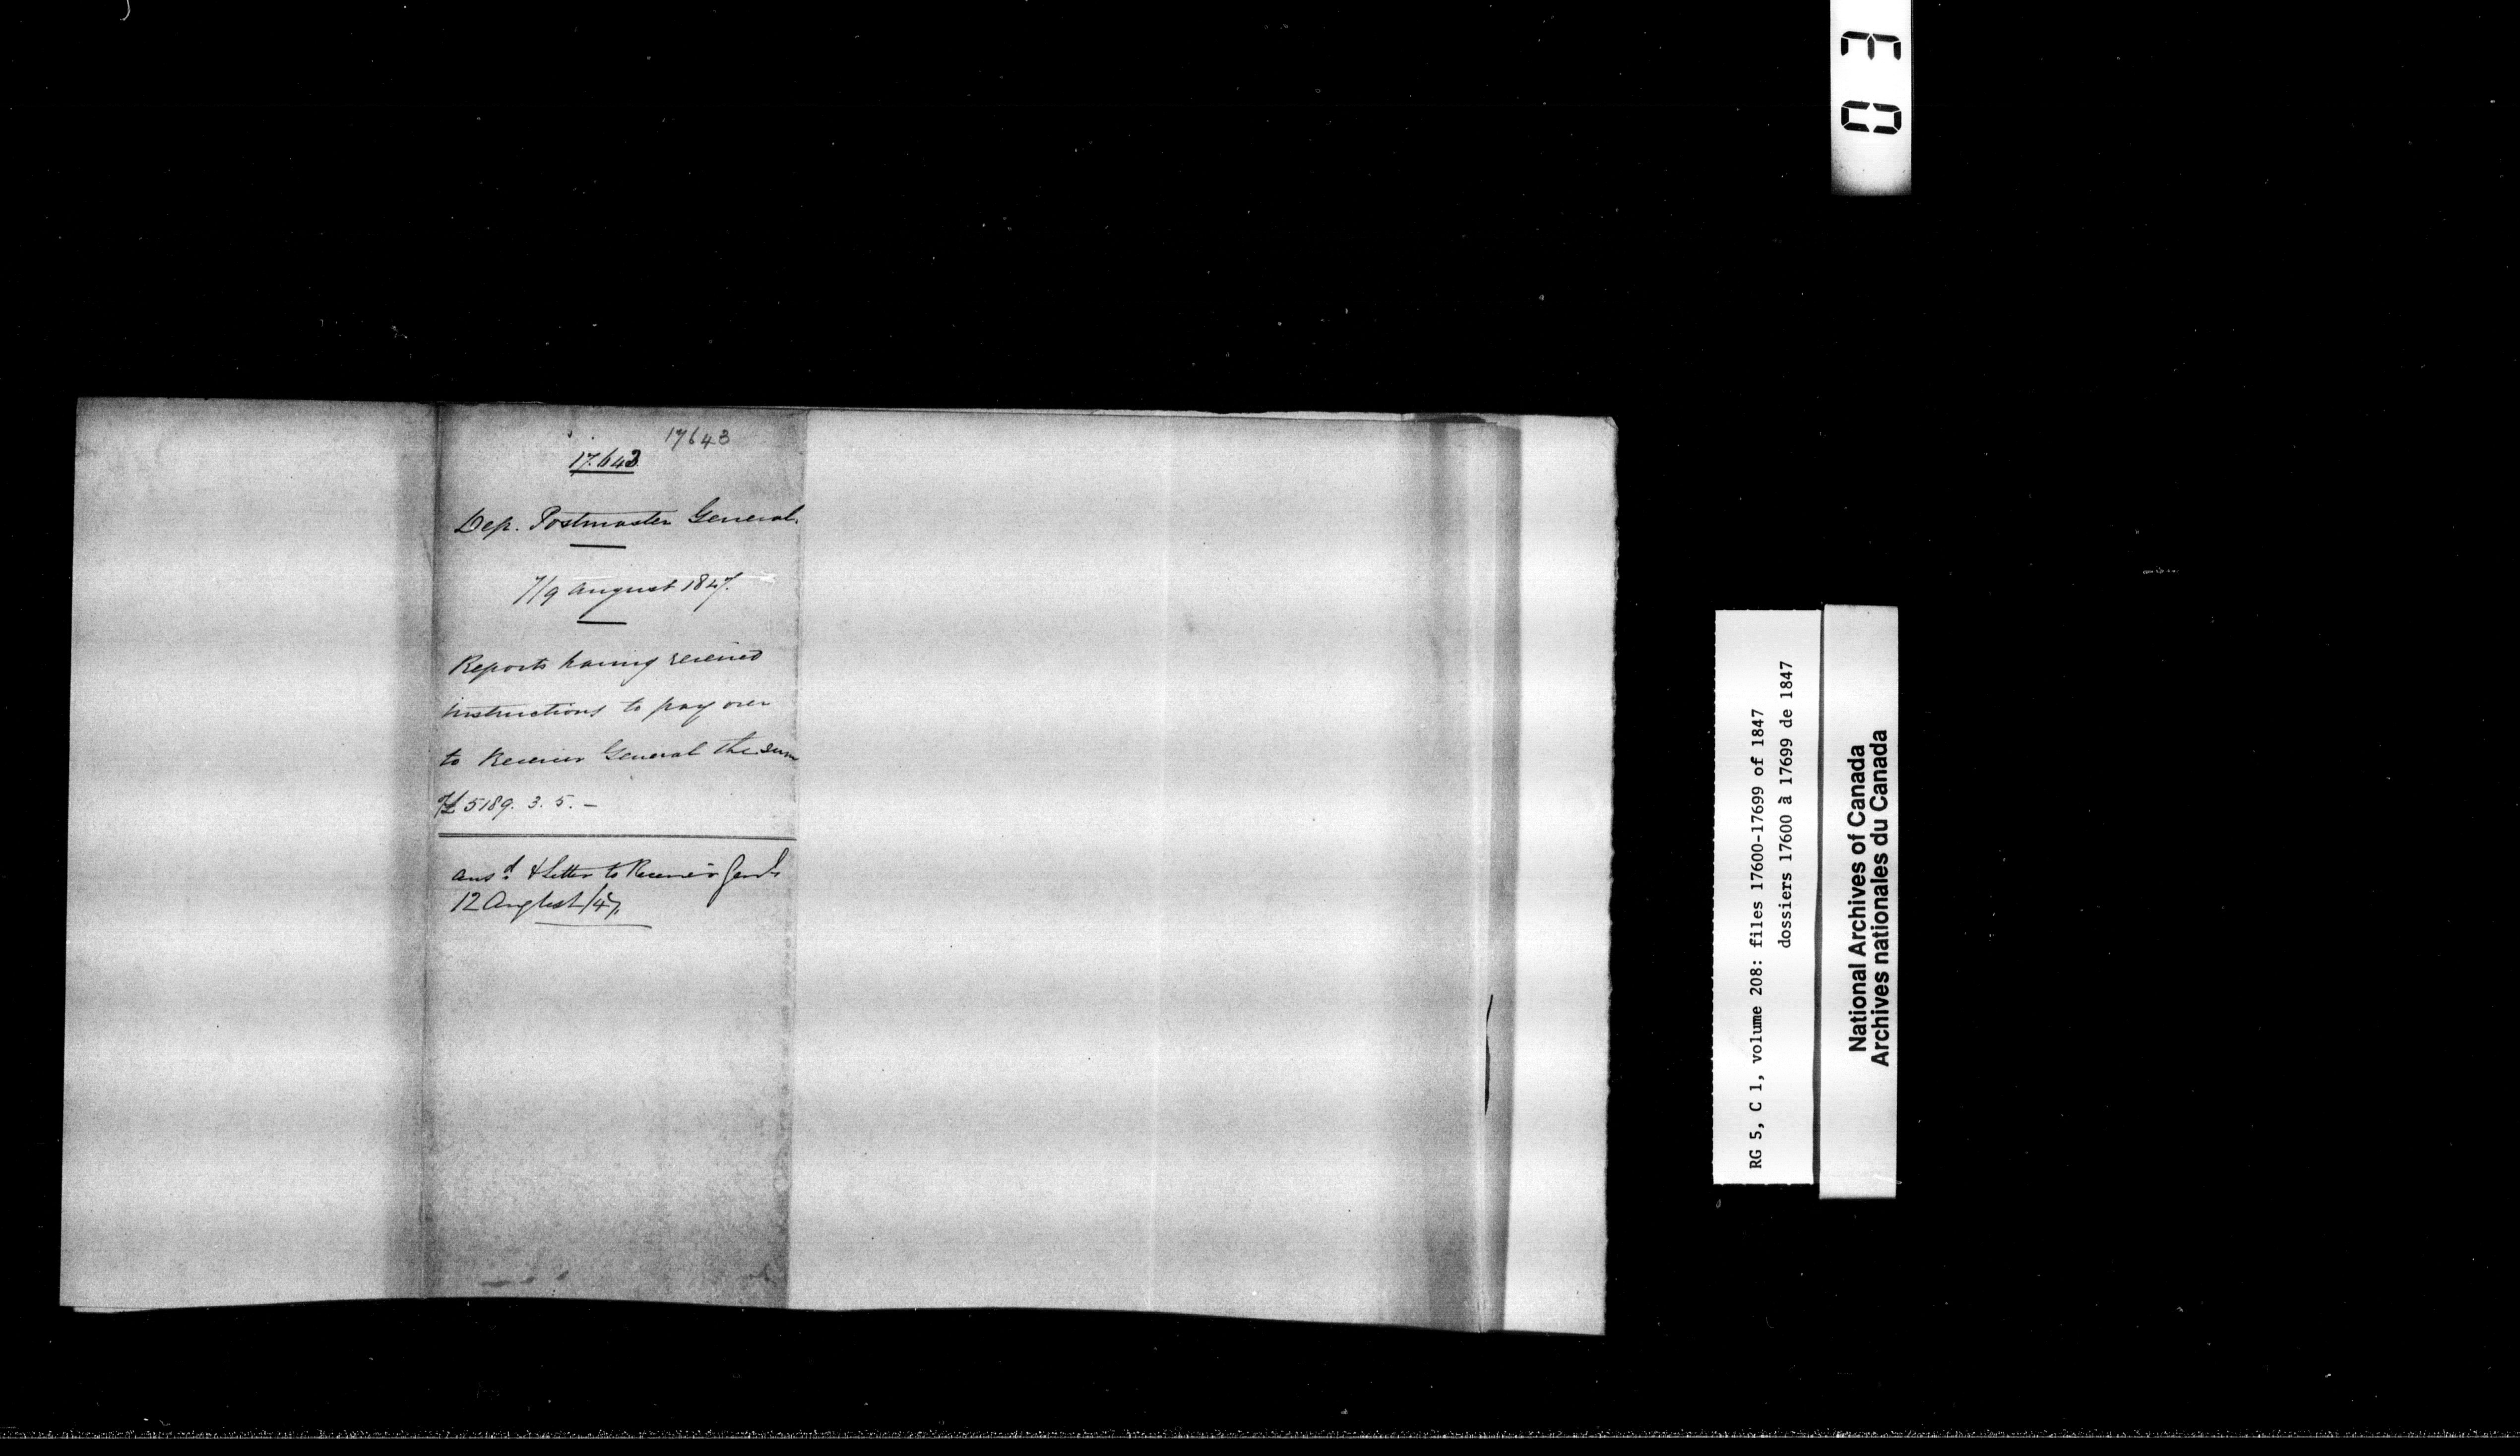 17643
17.643
Dep. Postmaster General.
7/9 August 1847.
Reports having received
instructions to pay over
to Receiver General the sum
of £5189. 3. 5. —
Ansd. & Letter to Receiver Genl.
12 August/47.
RG 5, C 1, volume 208: files 17600-17699 of 1847
dossiers 17600 à 17699 de 1847
National Archives of Canada
Archives nationales du Canada
03